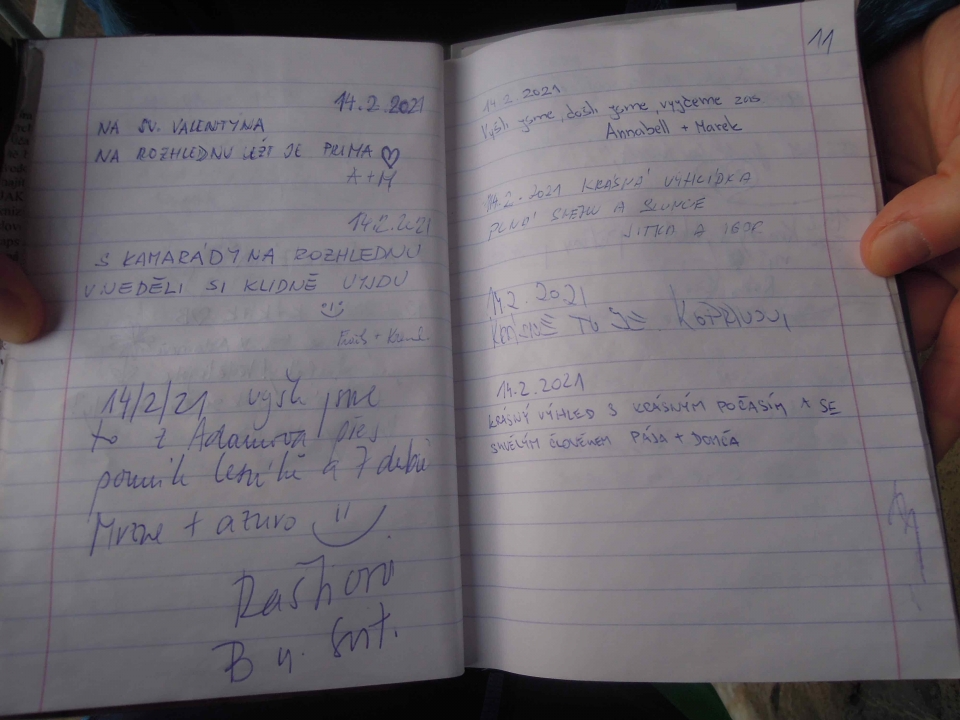 14.2.2021
NA SV. VALENTÝNA
NA ROZHLEDNU JÍT JE PRIMA ♡
A + M
14.2.2021
S KAMARÁDY NA ROZHLEDNU
V NEDĚLI SI KLIDNĚ VYJDU
14/2/21 vyšli jsme
to z Adamova přes
pomník lesníků a 7 dubů
Mrzne + azuro
Raškovi
B n. Svit.
11
14.2.2021
Vyšli jsme, došli jsme, vyjdeme zas
Annabell + Marek
14.2.2021 KRÁSNÁ VYHLÍDKA
PLNÁ SNĚHU A SLUNCE
JITKA A IGOR
14.2.2021
TU JE
14.2.2021
KRÁSNÝ VÝHLED S KRÁSNÝM POČASÍM + SE
SKVĚLÝM ČLOVĚKEM PÁJA + DOMČA